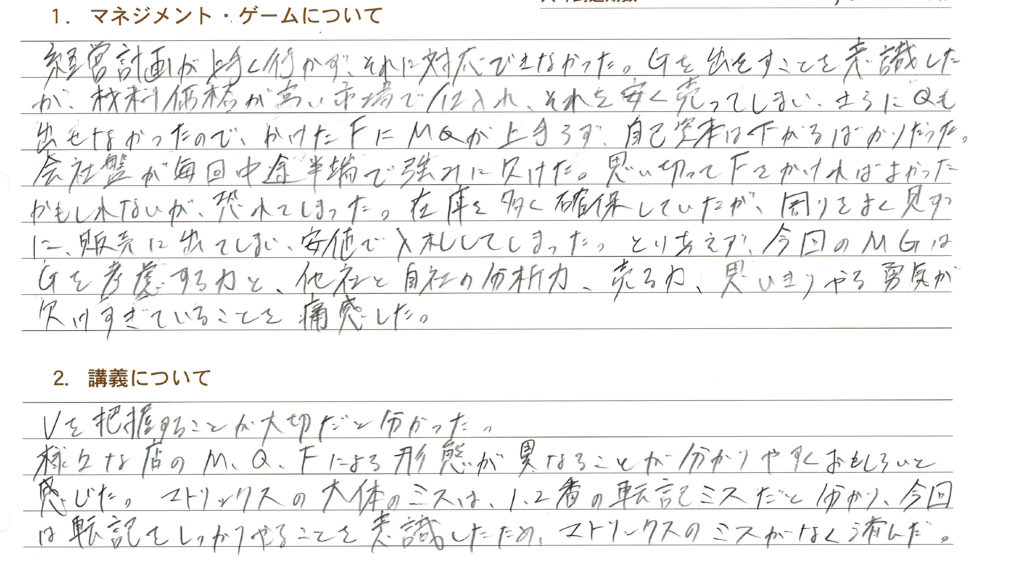 1. マネジメント・ゲームについて
経営計画が上手く行かず、それに対応できなかった。Gを出すことを意識した
が、材料価格が高い市場で仕入れ、それを安く売ってしまい、さらにQも
出せなかったので、かけたFにMQが上手らず、自己資本は下がるばかりだった。
会社盤が毎回中途半端で強みに欠けた。思い切ってFをかければよかった
かもしれないが、恐れてしまった。在庫を多く確保していたが、周りをよく見ず
に、販売に出てしまい、安値で入札してしまった。とり考えず、今回のMGは
Gを考慮する力と、他社と自社の分析力、売る力、思いきりやる勇気が
欠けすぎていることを痛感した。
2. 講義について
Vを把握することが大切だと分かった。
様々な店のM、Q、Fによる形態が異なることが分かりやすくおもしろいと
感じた。マトリックスの大体のミスは、1、2番の転記ミスだと分かり、今回
は転記をしっかりやることを意識したため、マトリックスのミスがなく済んだ。